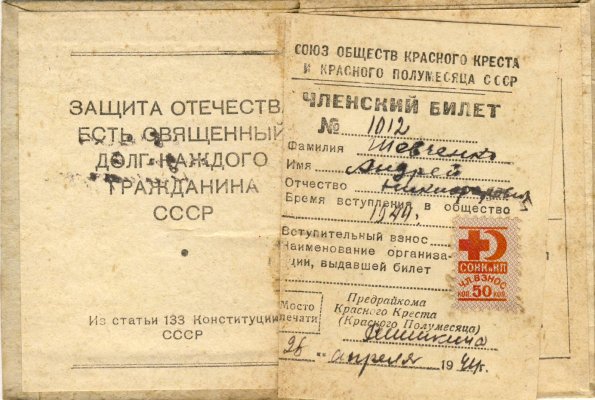 ЗАЩИТА ОТЕЧЕСТВА
ЕСТЬ СВЯЩЕННЫЙ
ДОЛГ КАЖДОГО
ГРАЖДАНИНА
СССР
Из статьи 133 Конституции
СССР
СОЮЗ ОБЩЕСТВ КРАСНОГО КРЕСТА
И КРАСНОГО ПОЛУМЕСЯЦА СССР
ЧЛЕНСКИЙ БИЛЕТ
№ 1012
Фамилия Шевченко
Имя Андрей
Отчество Никифорович
Время вступления в общество
1944.
Вступительный взнос
Наименование организа-
ции, выдавшей билет
СОКК и КП
ЧЛ. ВЗНОС
КОП. 50 КОП.
Место
печати
Предрайкома
Красного Креста
(Красного Полумесяца)
26 " апреля 1944г.